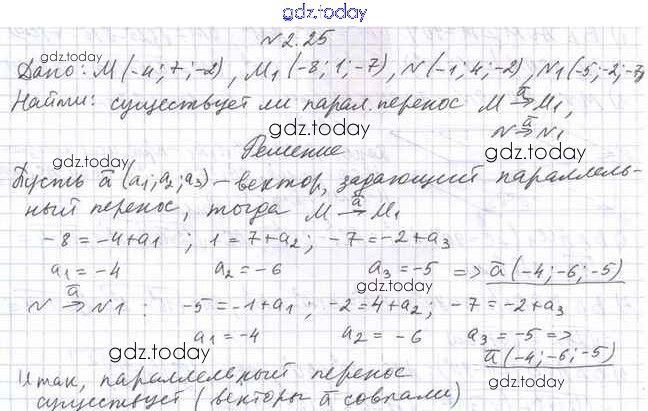 gdz.today
№ 2.25
gdz.today
Дано: M(-4; 7; -2), M₁(-8; 1; -7), N(-1; 4; -2), N₁(-5; -2; -7)
Найти: существует ли парал. перенос M →ā M₁,
N →ā N₁
gdz.today
Решение
gdz.today
gdz.today
Пусть ā (a₁; a₂; a₃) – вектор, задающий параллель-
ный перенос, тогда M →ā M₁
-8 = -4 + a₁ ; 1 = 7 + a₂ ; -7 = -2 + a₃
a₁ = -4 a₂ = -6 a₃ = -5 => ā(-4; -6; -5)
N →ā N₁ : -5 = -1 + a₁ ; -2 = 4 + a₂ ; -7 = -2 + a₃
a₁ = -4 a₂ = -6 a₃ = -5 =>
gdz.today
ā(-4; -6; -5)
Итак, параллельный перенос
gdz.today
существует (векторы ā совпали)
gdz.today